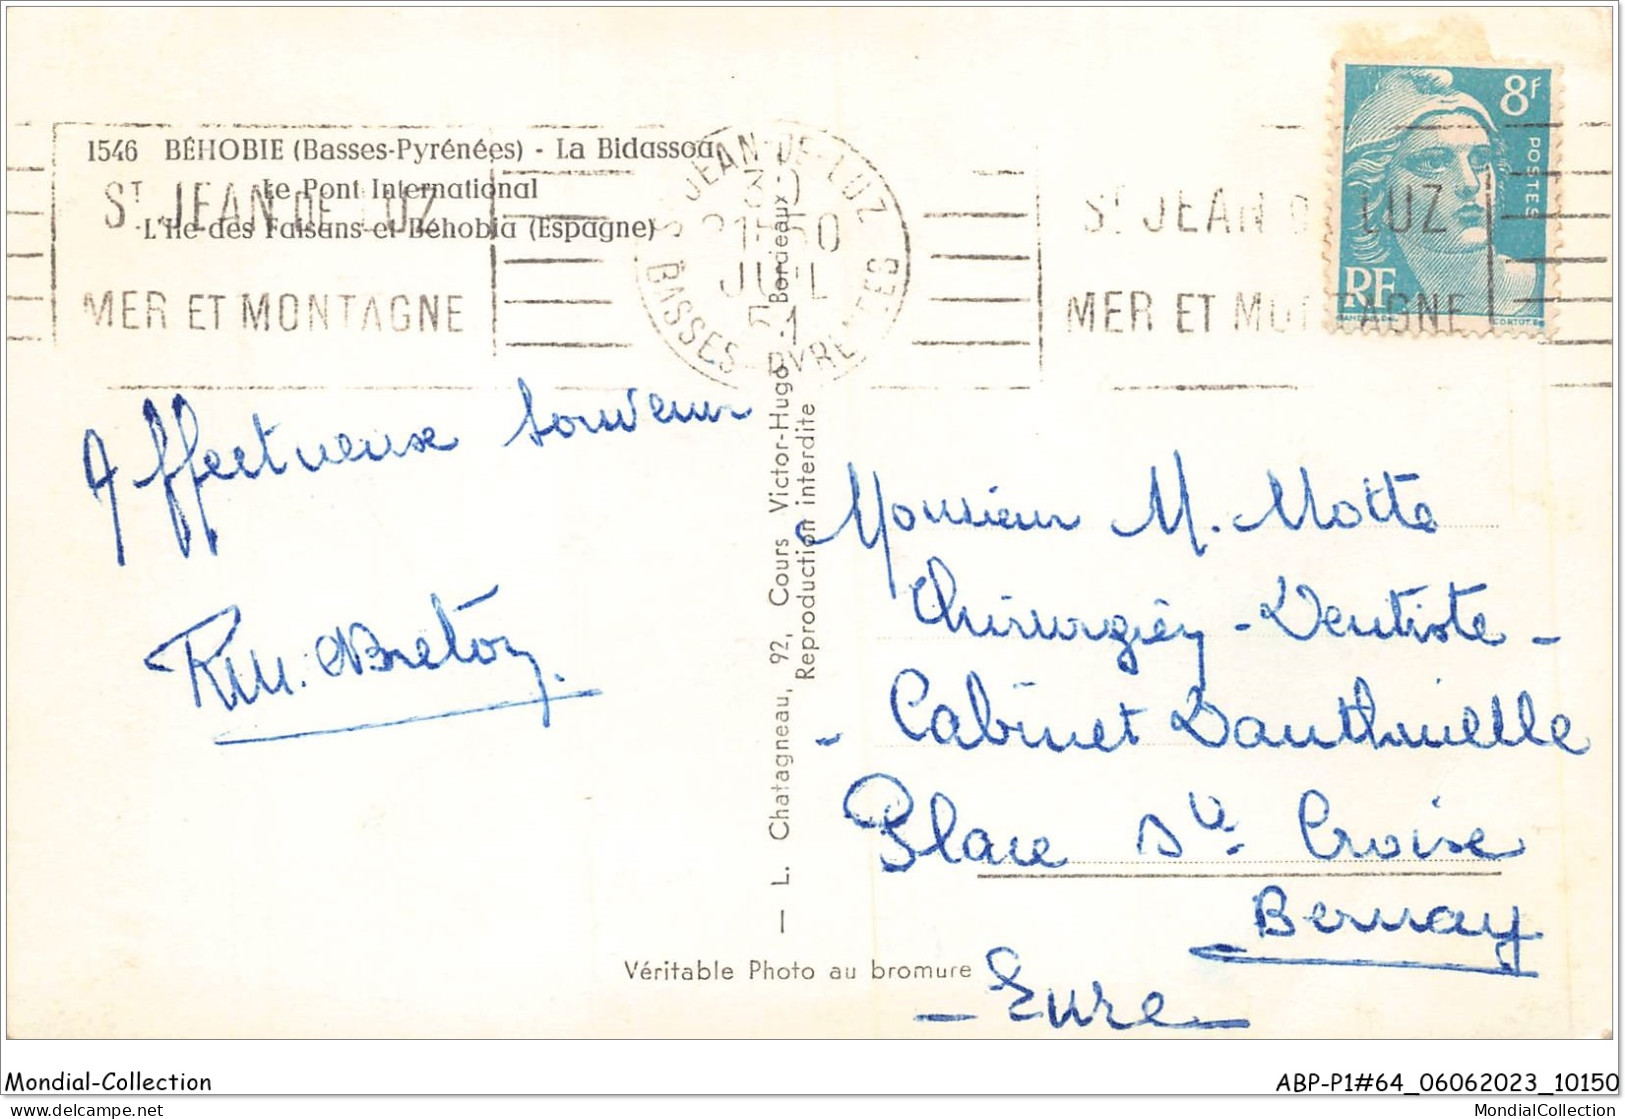 1546 BÉHOBIE (Basses-Pyrénées) - La Bidassoa
Le Pont International
L'Ile des Faisans et Béhobia (Espagne)
ST JEAN DE LUZ
MER ET MONTAGNE
ST JEAN-DE-LUZ
30
JUIL
51
BASSES-PYRENEES
ST JEAN D LUZ
MER ET MONTAGNE
8F
POSTES
RF
GANDON
CORTOT
Affectueuse souvenir
Breton
— L. Chatagneau, 92, Cours Victor-Hugo - Bordeaux
Reproduction interdite
Monsieur M. Motte
Chirurgien - Dentiste -
- Cabinet Dauthuielle
Place Ste Croise
Bernay
- Eure -
Véritable Photo au bromure
Mondial-Collection
ABP-P1#64_06062023_10150
delcampe.net
MondialCollection